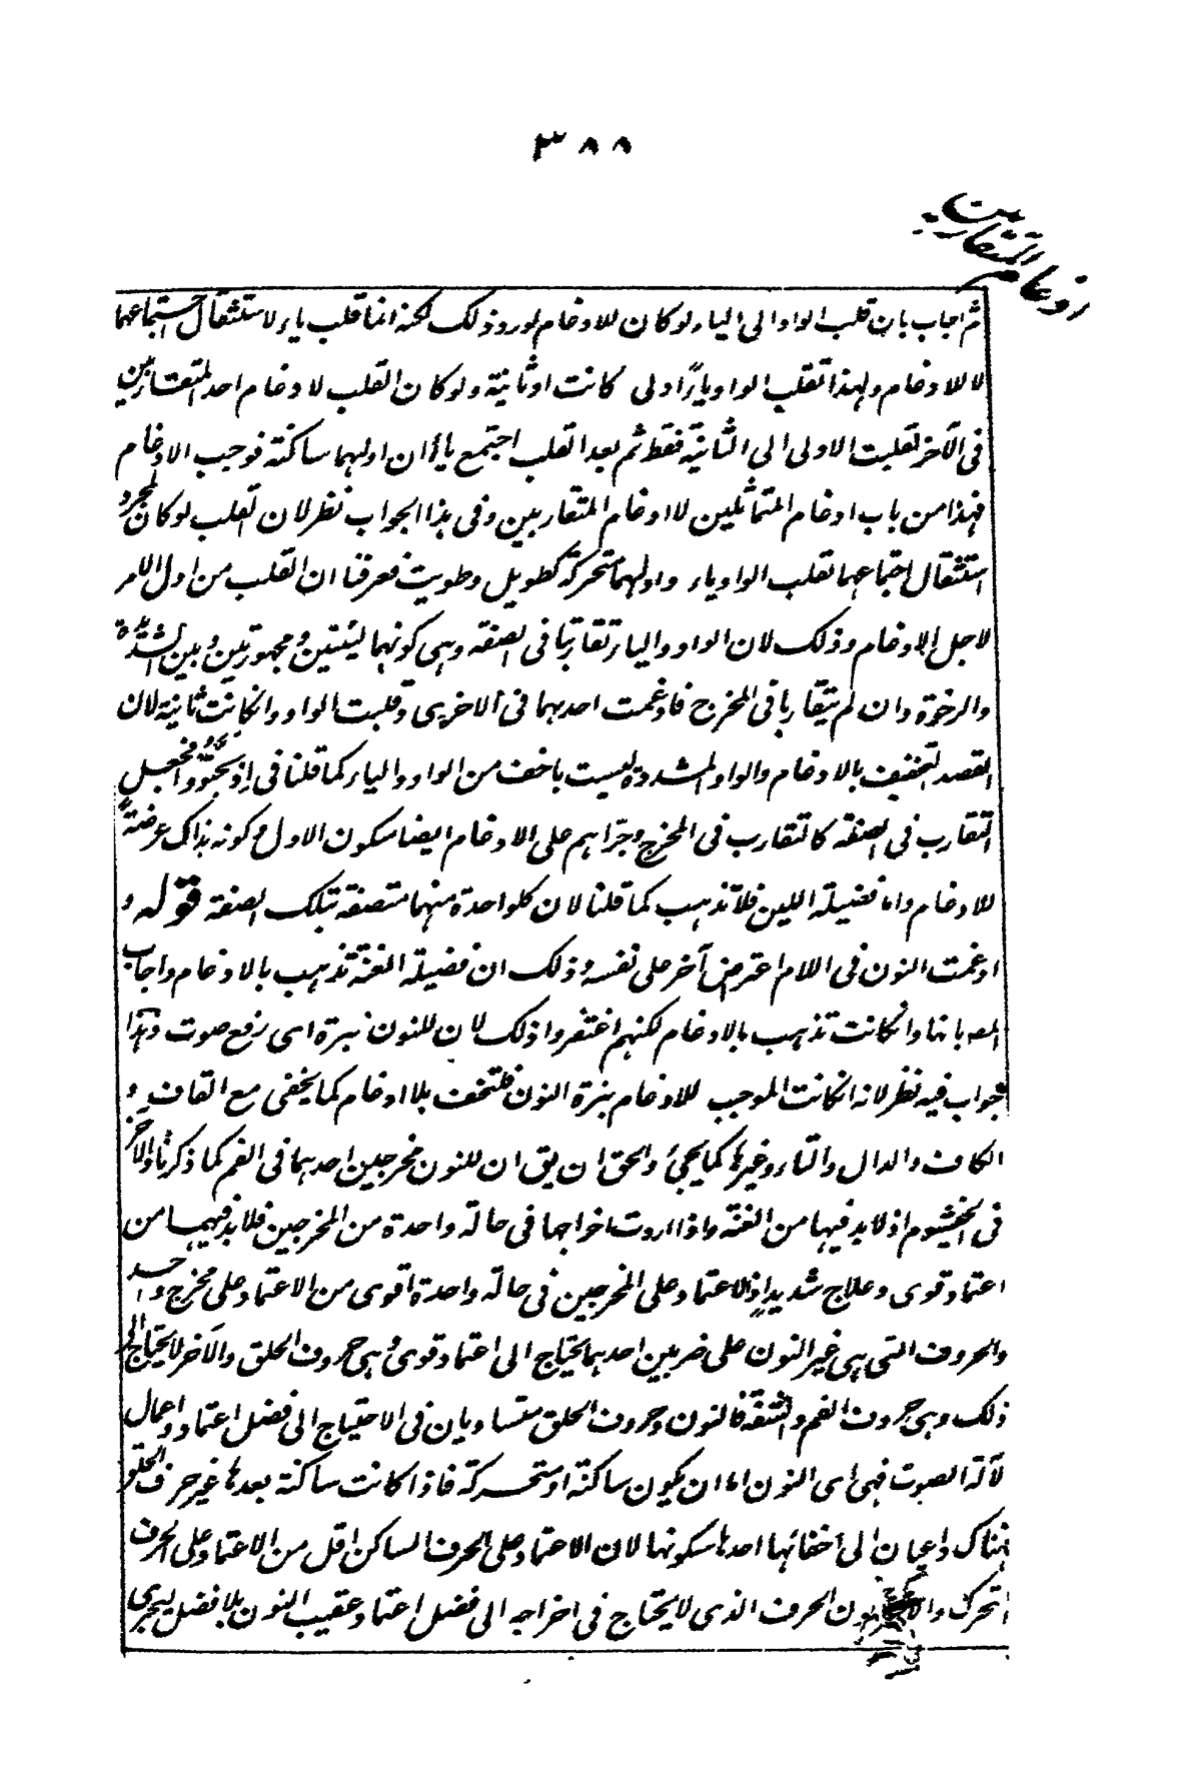 ٣٨٨
ادغام المتقاربين
ثم اجاب بان قلب الواو الى الياء لو كان للادغام لورد ذلك لكنه انما قلب ياء لاستثقال اجتماعهما
لا للادغام ولهذا تقلب الواو ياءً اولى كانت او ثانية ولو كان القلب لادغام احد المتقاربين
فى الآخر لقلبت الاولى الى الثانية فقط ثم بعد القلب اجتمع ياأن اوليهما ساكنة فوجب الادغام
فهذا من باب ادغام المتماثلين لا ادغام المتقاربين وفى هذا الجواب نظر لان القلب لو كان لمجرد
استثقال اجتماعهما لقلب الواو ياء واولهما متحركة كطويل وطويت فعرفنا ان القلب من اول الامر
لاجل الادغام وذلك لان الواو والياء تقاربتا فى الصفة وهى كونهما لينتين ومجهورتين وبين الشديدة
والرخوة وان لم يتقاربا فى المخرج فادغمت احديهما فى الاخرى وقلبت الواو وان كانت ثانية لان
القصد التخفيف بالادغام والواو المشددة ليست باخف من الواو والياء كما قلنا فى اذبحتودا فجعل
التقارب فى الصفة كالتقارب فى المخرج وجرّاهم على الادغام ايضا سكون الاول وكونه بذاك عرضة
للادغام واما فضيلة اللين فلا تذهب كما قلنا لان كلواحدة منهما متصفة بتلك الصفة قوله و
ادغمت النون فى اللام اعترض آخر على نفسه وذلك ان فضيلة الغنة تذهب بالادغام واجاب
المصـ بانها وان كانت تذهب بالادغام لكنهم اغتفروا ذلك لان للنون نبرة اى رفع صوت وهذا
جواب فيه نظر لانه ان كانت الموجب للادغام نبرة النون فلتخف بلا ادغام كما يخفى مع القاف و
الكاف والدال والتاء وغيرها كما يجئ والحق ان يق ان للنون مخرجين احدهما فى الفم كما ذكرنا والآخر
فى الخيشوم اذ لابد فيها من الغنة واذا اردت اخراجها فى حالة واحدة من المخرجين فلابد فيهما من
اعتماد قوى وعلاج شديد اذ الاعتماد على المخرجين فى حالة واحدة اقوى من الاعتماد على مخرج واحد
والحروف التى هى غير النون على ضربين احدهما يحتاج الى اعتماد قوى وهى حروف الحلق والآخر لا يحتاج الى
ذلك وهى حروف الفم والشفة فالنون وحروف الحلق متساويان فى الاحتياج الى فضل اعتماد واعمال
لآلة الصوت فهى اى النون اما ان يكون ساكنة او متحركة فاذا كانت ساكنة بعدها غير حرف الحلق
فهناك داعيان الى اخفائها احدها سكونها لان الاعتماد على الحرف الساكن اقل من الاعتماد على الحرف
المتحرك والآخر كون الحرف الذى لا يحتاج فى اخراجه الى فضل اعتماد عقيب النون بلا فصل ليجرى